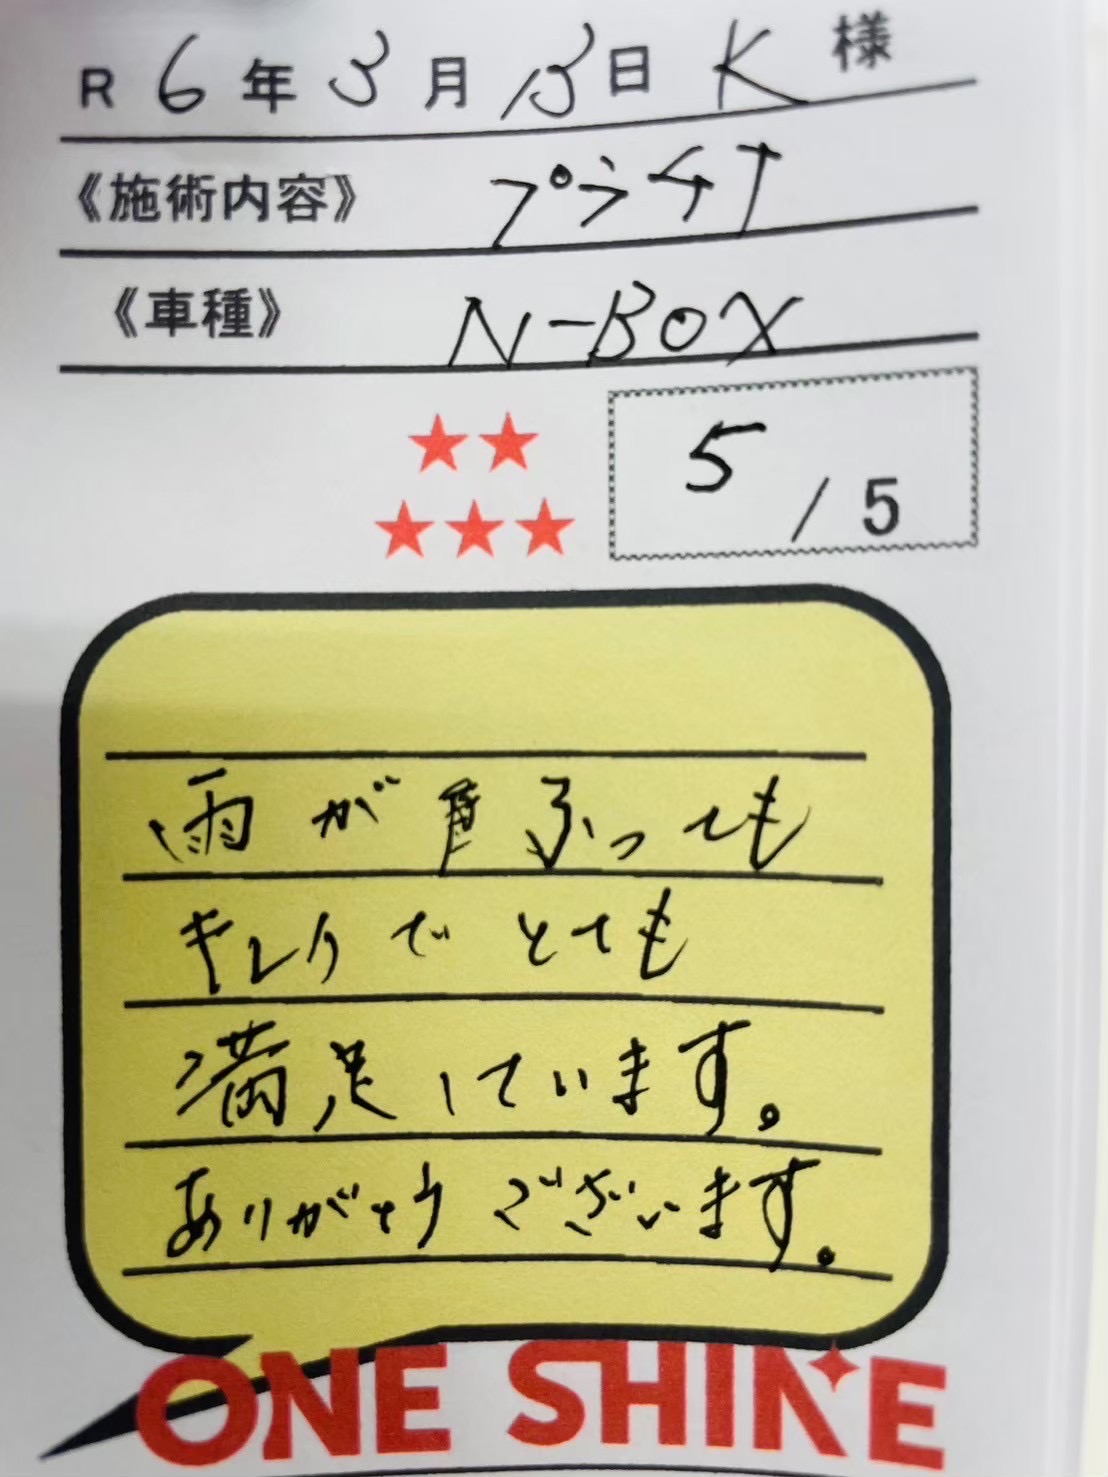 R 6年 3月 13日 K 様
《施術内容》 プラチナ
《車種》 N-BOX
5 / 5
雨が ふっても
キレイで とても
満足しています。
ありがとう ございます。
ONE SHINE